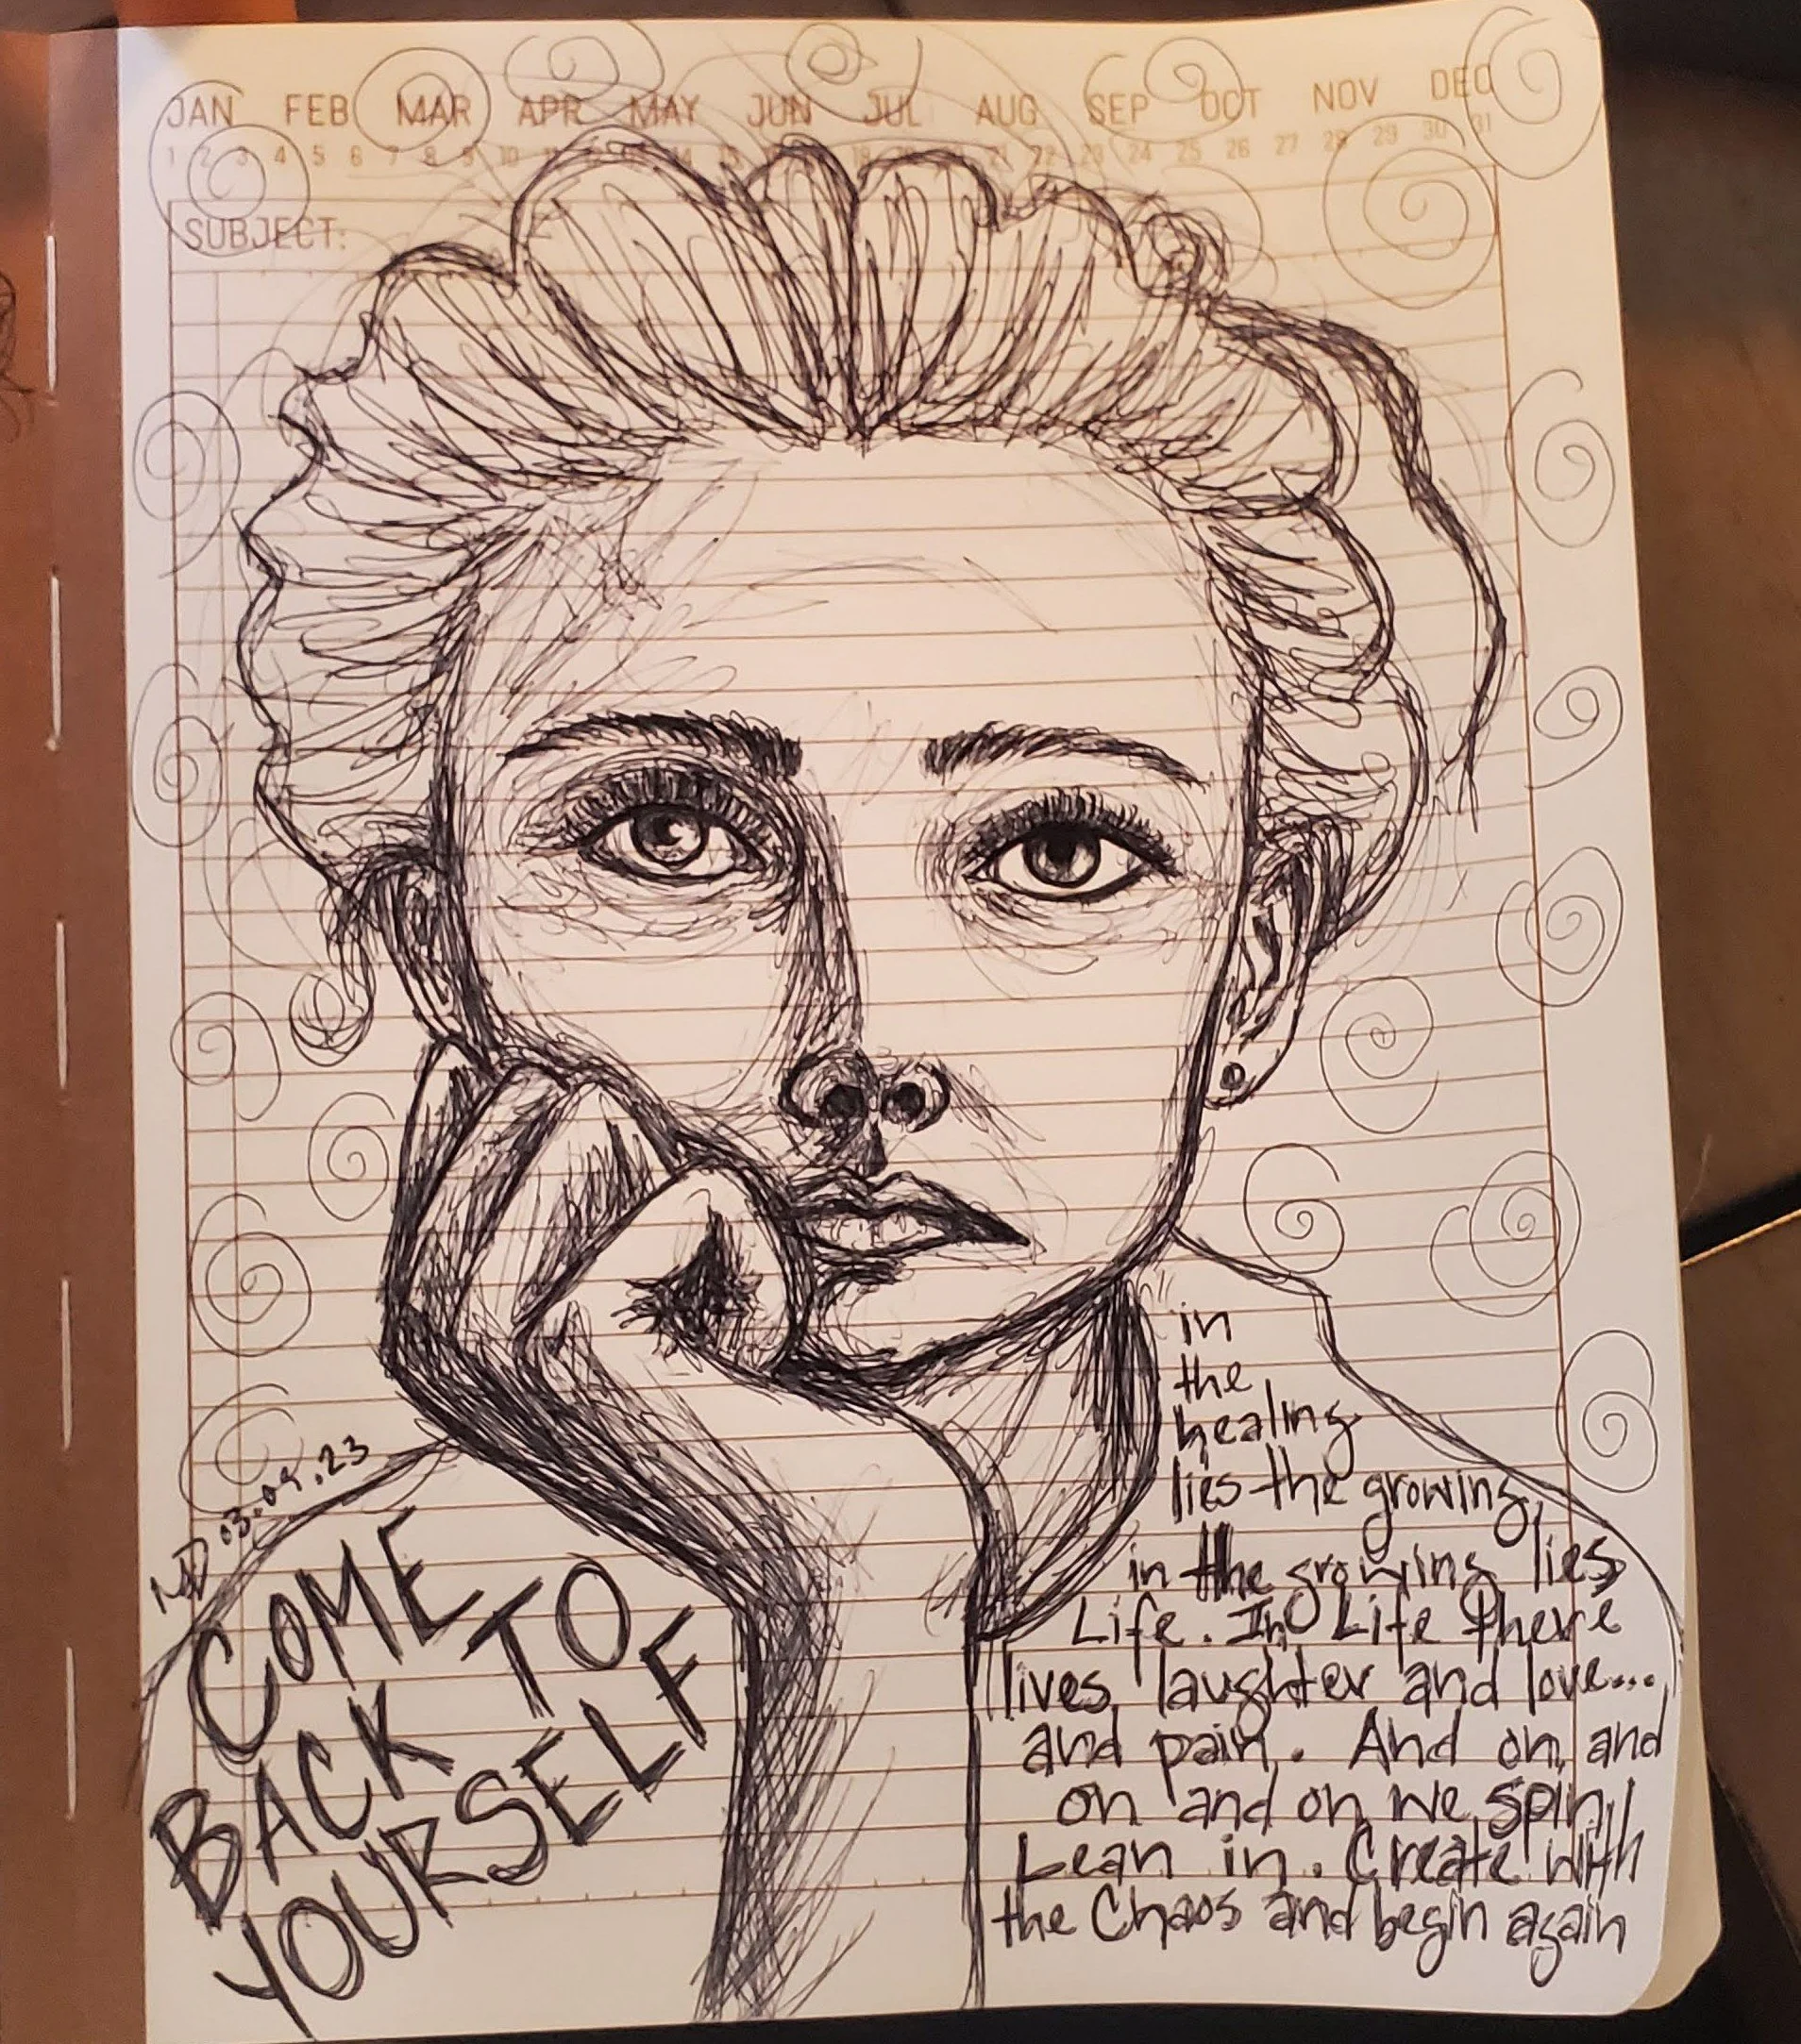 JAN FEB MAR APR MAY JUN JUL AUG SEP OCT NOV DEC
1 2 3 4 5 6 7 8 9 10 11 12 13 14 15 16 17 18 19 20 21 22 23 24 25 26 27 28 29 30 31
SUBJECT:
in
the
healing
lies the growing,
in the growing lies
Life. In Life there
lives laughter and love...
and pain. And on and
on and on we spin
Lean in. Create with
the Chaos and begin again
03.09.23
COME
BACK TO
YOURSELF